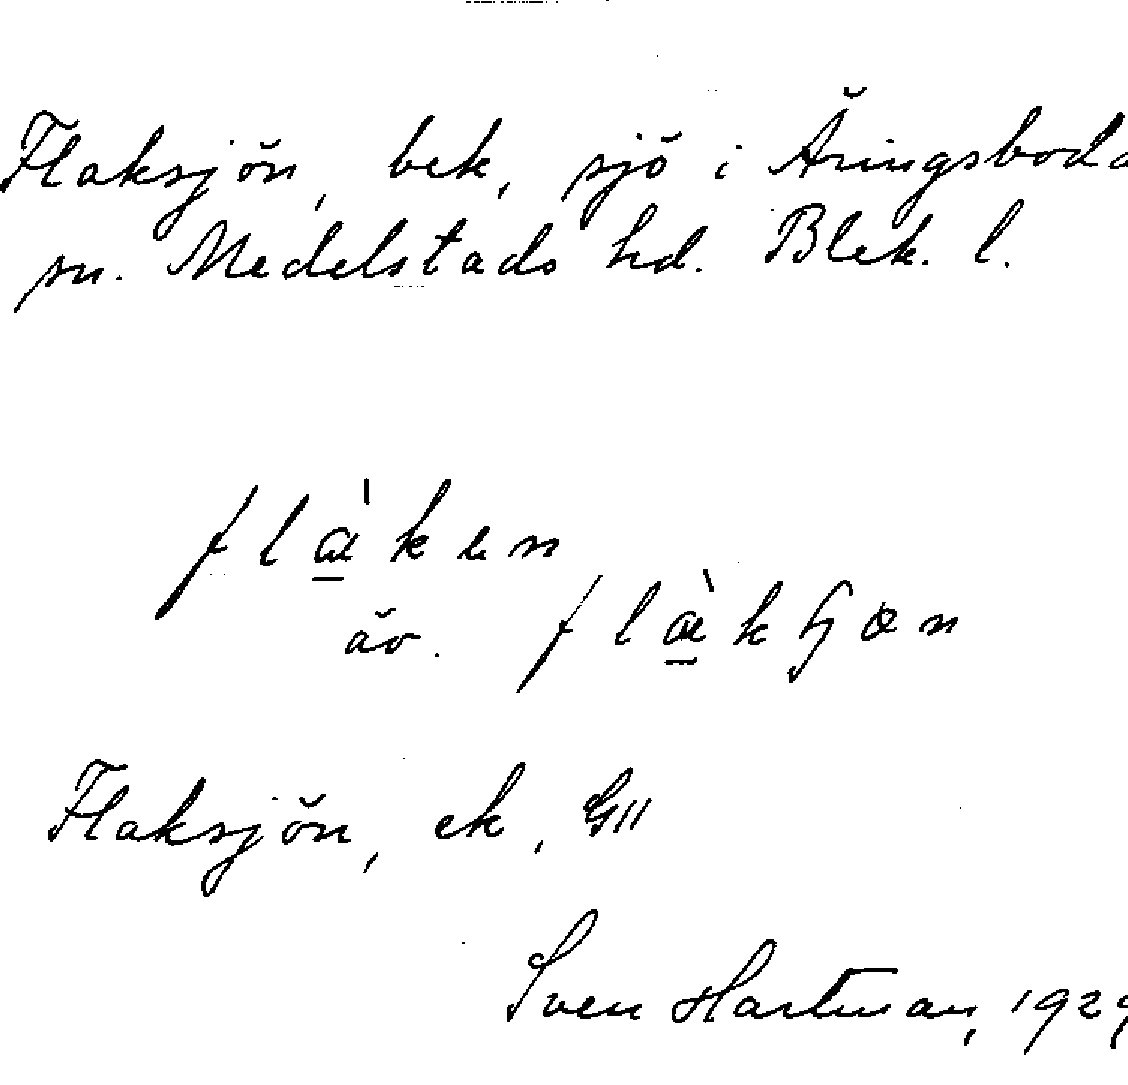 Flaksjön, bek, sjö i Åringsboda
sn. Medelstads hd. Blek. l.
flàken
äv. flàkɧœn
Flaksjön, ek, GII
Sven Hartman, 1929